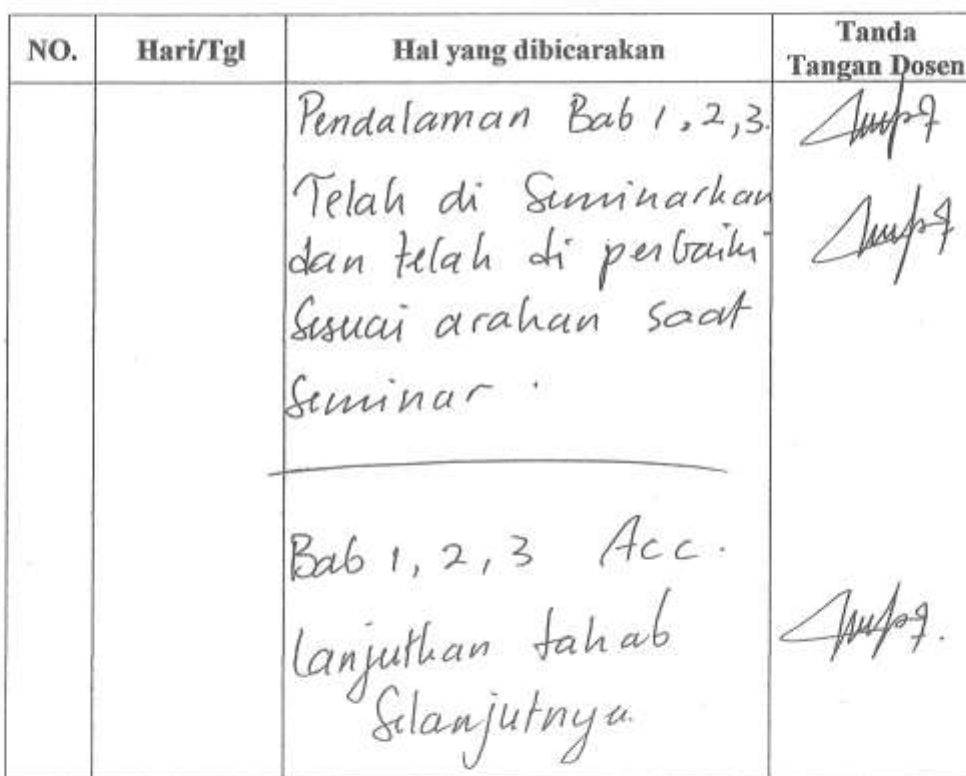 NO. Hari/Tgl Hal yang dibicarakan Tanda Tangan Dosen
Pendalaman Bab 1, 2, 3.
Telah di Seminarkan
dan telah di perbaiki
Sesuai arahan saat
Seminar.
Bab 1, 2, 3 Acc.
lanjutkan tahab
Selanjutnya.